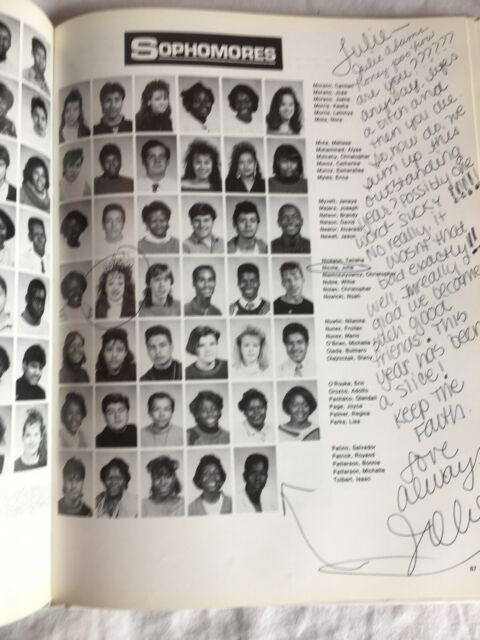 SOPHOMORES
Morano, Carmen
Moreno, Jose
Moreno, Juana
Morris, Kesha
Morris, Latonya
Mota, Nora
Mota, Melissa
Mohammed, Alyea
Mulcahy, Christopher
Muniz, Catherine
Muniz, Esmeraldas
Myles, Erica
Myvett, Janaya
Nelson, Brandy
Nelson, David
Nestor, Alvarado
Newell, Jason
Nickson, Tanisha
Nicola, Julie
Christopher
Noble, Willie
Nolan, Christopher
Nowicki, Noah
Nunez, Froilan
Nunez, Mario
O'Brien, Michelle
Olejniczak, Stacy
O'Rourke, Erin
Orozco, Adolfo
Pacheco, Glendali
Page, Joyce
Palmer, Regina
Parks, Lisa
Patino, Salvador
Patrick, Royand
Patterson, Bonnie
Patterson, Michelle
Tolbert, Isaac
Julie—
Julie Adams
Honey poo how
are you ??????
anyway lifes
a bitch and
then you die
So how do we
sum up this
outstanding
year? Possibly one
word suck? !!!!!
No really it
wasn't that
bad exactly!!
well, I'm really
glad we became
such good
friends. This
year has been
a slice!
Keep the
Faith.
Love
always,
Julie
67